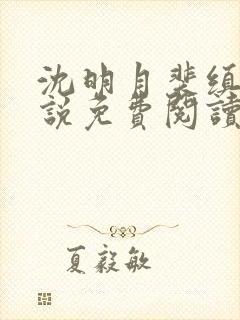 沈明月裴績
說免費閱讀
夏毅敏